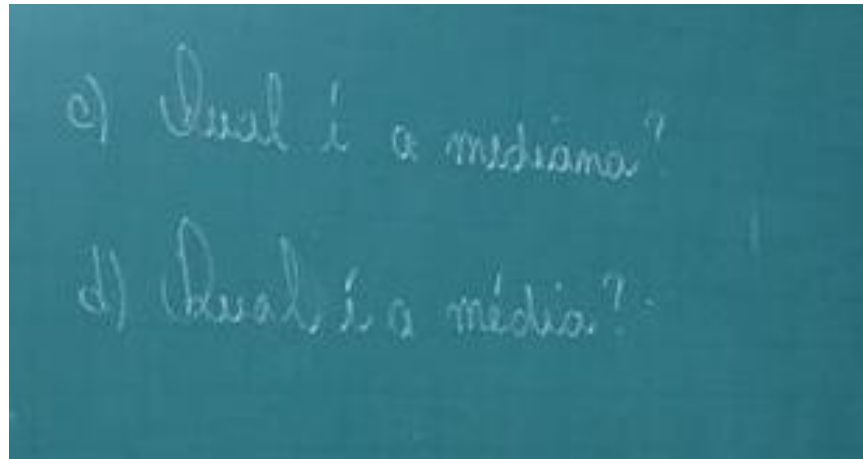 c) Qual é a mediana?
d) Qual é a média?